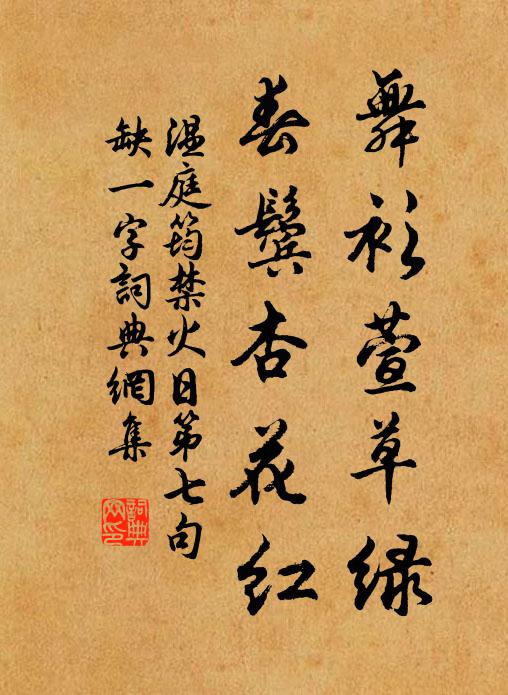 舞衫萱草緑
春鬢杏花紅
温庭筠禁火日第七句
缺一字詞典網集
詞典
网印